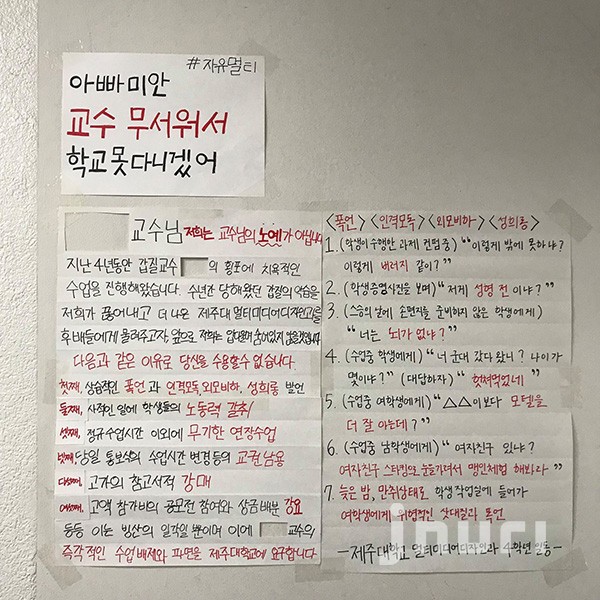 #자유멀티
아빠 미안
교수 무서워서
학교 못 다니겠어
교수님 저희는 교수님의 노예가 아닙니다
지난 4년동안 갑질교수 의 횡포에 치욕적인
수업을 진행해왔습니다. 수년간 당해왔던 갑질의 악습을
저희가 끊어내고 더 나은 제주대 멀티미디어디자인과를
후배들에게 물려주고자, 앞으로 저희는 일대응하
다음과 같은 이유로 당신을 수용할 수 없습니다.
첫째, 상습적인 폭언과 인격모독, 외모비하, 성희롱 발언
둘째, 사적인 일에 학생들의 노동력 갈취
셋째, 정규수업시간 이외에 무기한 연장수업
넷째, 당일 통보식의 수업시간 변경 등의 교권남용
다섯째, 고가의 참고서적 강매
여섯째, 고액 참가비의 공모전 참여와 상금배분 강요
등등 이는 빙산의 일각일 뿐이며 이에 교수의
즉각적인 수업 배제와 파면을 제주대학교에 요구합니다
<폭언> <인격모독> <외모비하> <성희롱>
1. (학생이 수행한 과제 컨펌 중) "이렇게 밖에 못하냐?
이렇게 버러지 같이?"
2. (학생증명사진을 보며) "저게 성형 전이냐?"
3. (스승의 날에 손편지를 준비하지 않은 학생에게)
"너는 뇌가 없냐?"
4. (수업중 학생에게) "너 군대 갔다 왔니? 나이가
몇이냐?" (대답하자) "헛쳐먹었네"
5. (수업중 여학생에게) "△△이보다 모텔을
더 잘 아는데?"
6. (수업중 남학생에게) "여자친구 있냐?
여자친구 스타킹으로 눈을 가려서 맹인체험 해봐라"
7. 늦은 밤, 만취상태로 학생 작업실에 들어가
여학생에게 위협적인 삿대질과 폭언
jnuri
-제주대학교 멀티미디어디자인과 4학년 일동-